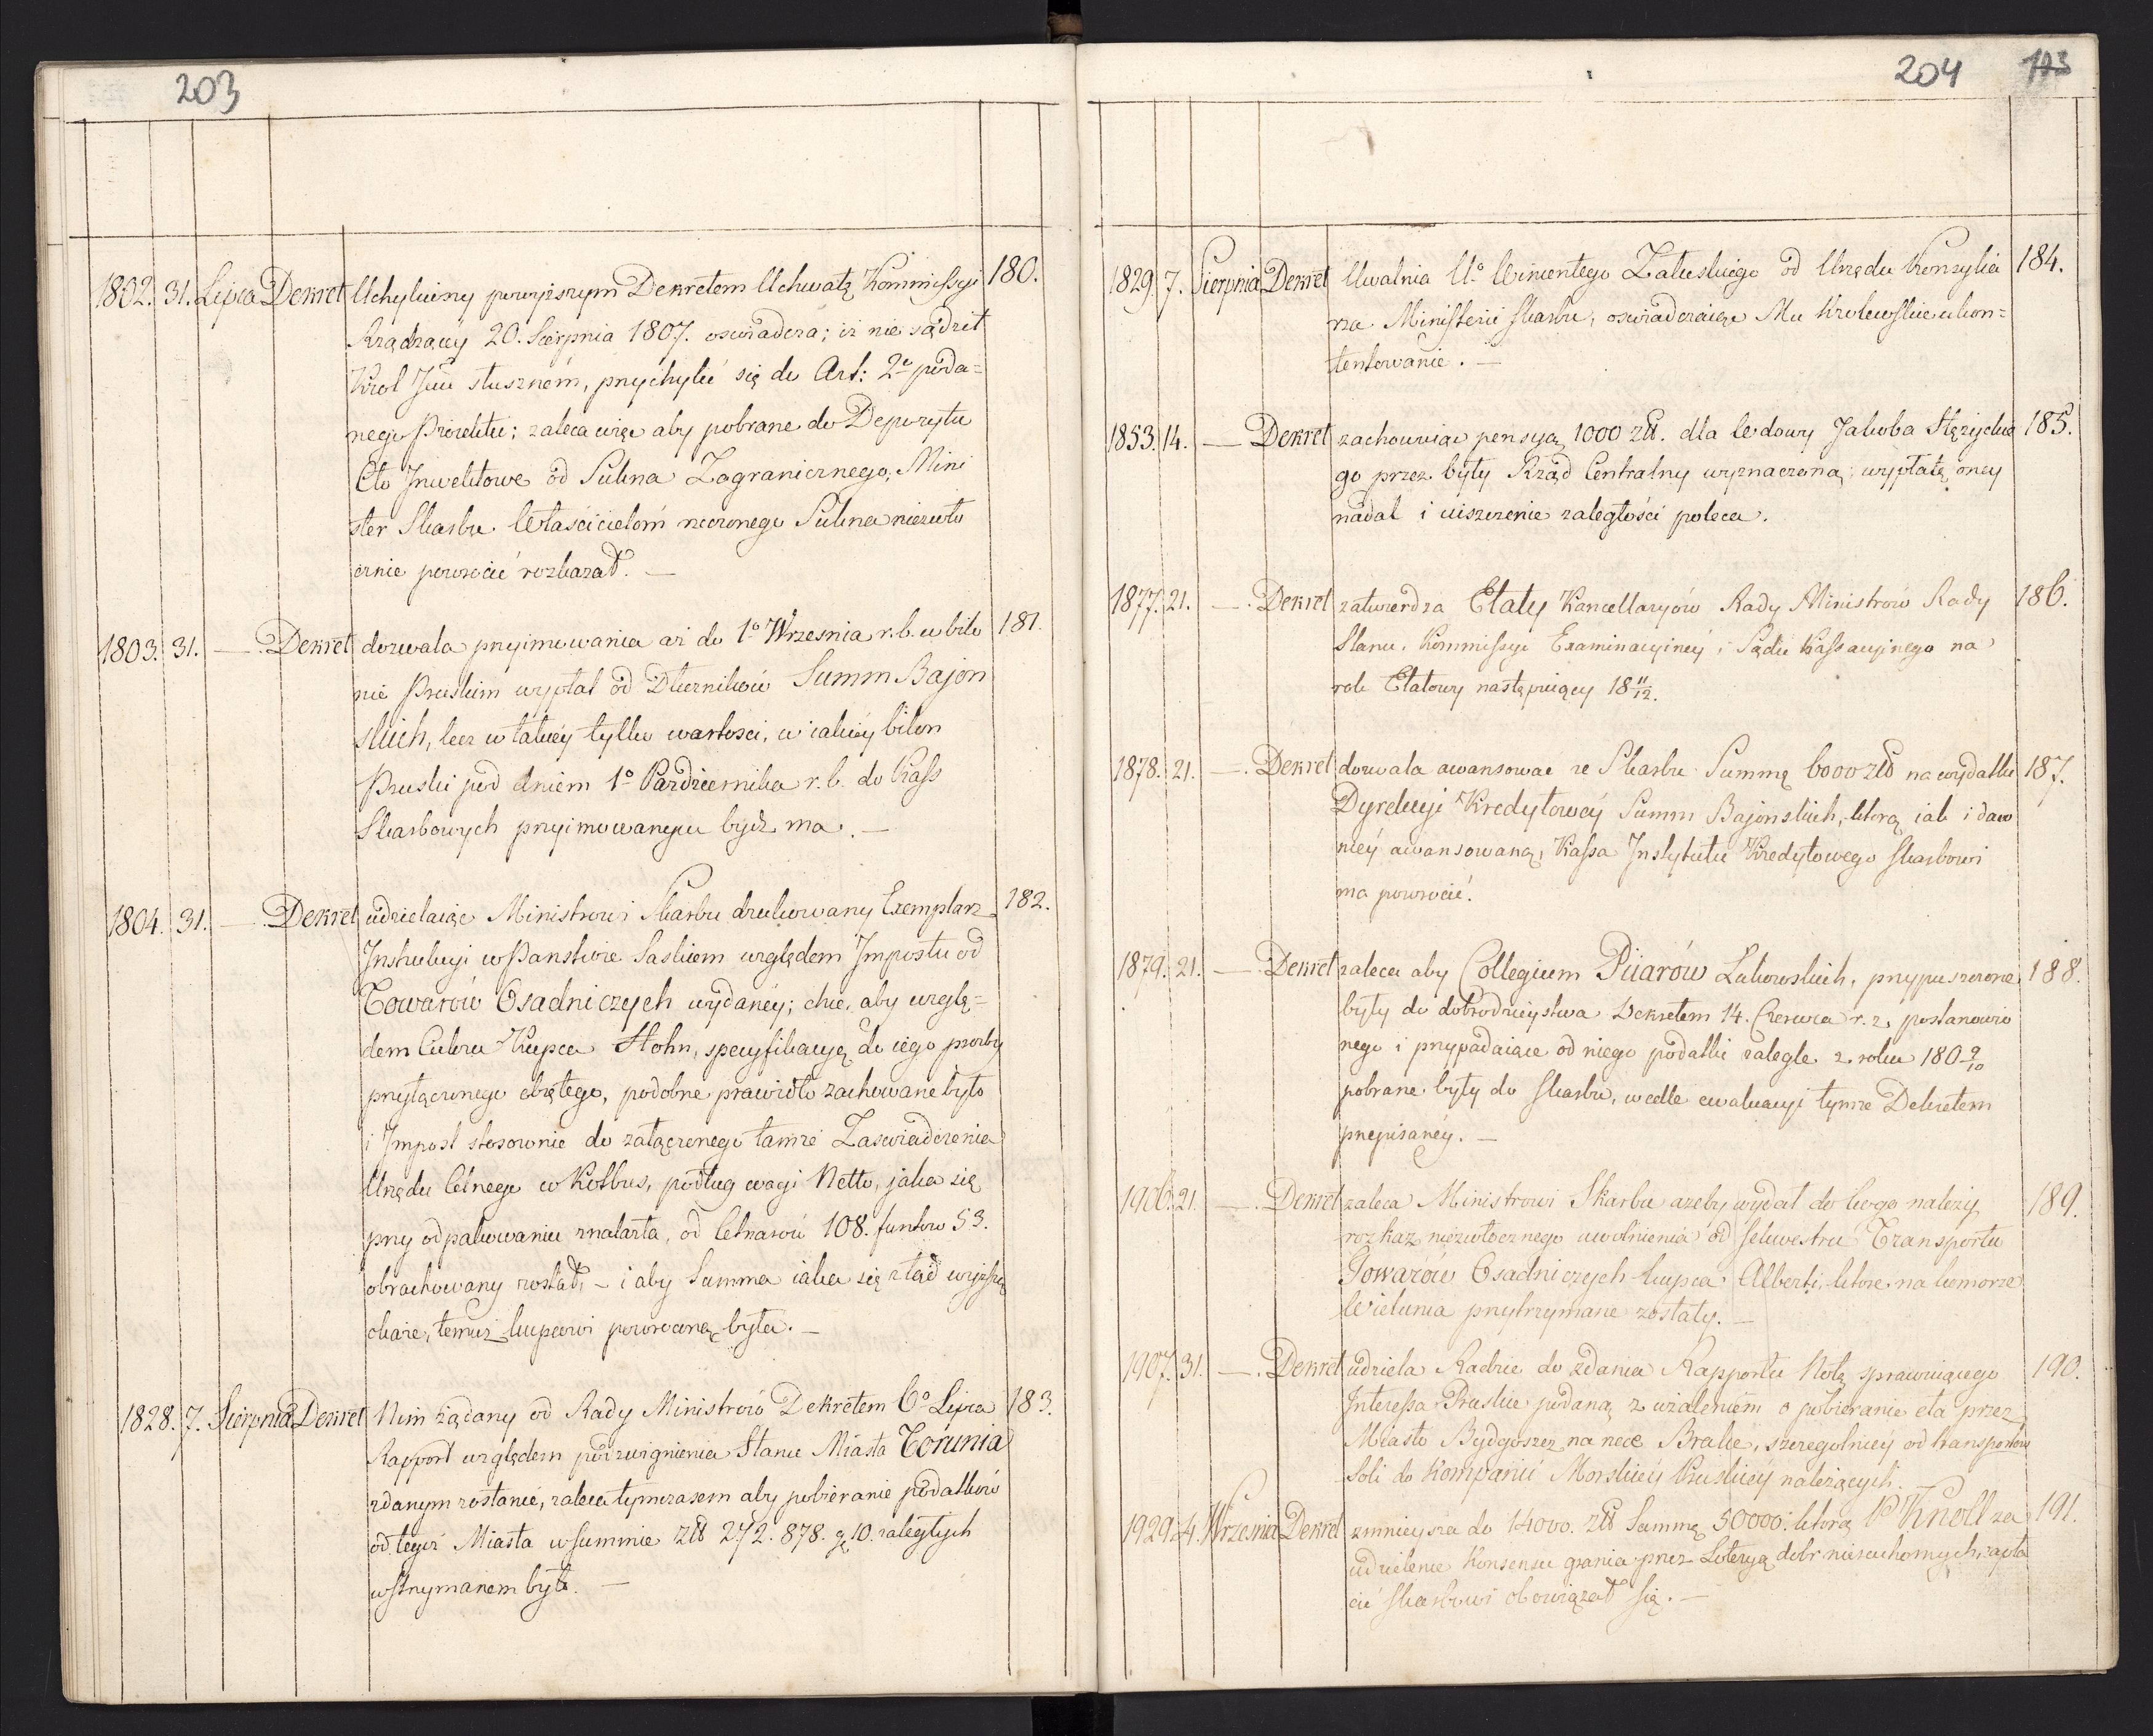 203
1802. 31. Lipca Dekret Uchyliwiny powyższym Dekretem Uchwałę Kommissyi 180.
Rządzącey 20. Sierpnia 1807. oswiadcza; iż nie sądził
Krol Jmć słusznem, przychylić się do Art: 2º poda=
nego Proiektu; zaleca więc aby pobrane do Depozytu
Cło Inwektowe od Sukna Zagranicznego, Mini
ster Skarbu Właścicielom rzeczonego Sukna niezwło
cznie powrocić rozkazał. —
1803. 31. — Dekret dozwala przyimowania aż do 1º Wrzesnia r. b. w bilo 181.
nie Pruskim wypłat od Dłużników Summ Bajon
skich, lecz w takiéy tylko wartosci, w iakiéy bilon
Pruski pod dniem 1º Pazdziernika r. b. do Kass
Skarbowych przyimowanym bydź ma. —
1804. 31. — Dekret udzielaiąc Ministrowi Skarbu drukowany Exemplarz 182.
Instrukcyi w Panstwie Saskiem względem Impostu od
Towarów Osadniczych wydanéy; chce, aby wzglę=
dem Cukru Kupca Hohn, specyfikacyą do iego prozby
przyłączonego obiętego, podobne prawidło zachowane było
i Impost stosownie do załączonego tamże Zaswiadczenia
Urzędu Celnego w Kotbus, podług wagi Netto, jaka się
przy odpakowaniu znalazła, od Cetnarów 108. funtow 53.
obrachowany został, – i aby Summa iaka się ztąd wyższą
okaże, temuż kupcowi powroconą była. —
1828. 7. Sierpnia Dekret Nim żądany od Rady Ministrów Dekretem 6º Lipca 183.
Rapport względem podzwignienia Stanu Miasta Torunia
zdanym zostanie, zaleca tymczasem aby pobieranie podatków
od tegoż Miasta w summie Złł 272. 878. g 10. zaległych
wstrzymanem było. —
204 123
1829. 7. Sierpnia Dekret Uwalnia Uº Wincentego Załuskiego od Urzędu Konsylia 184.
rza Ministerii Skarbu, oswiadczaiąc Mu Krolewskie ukon=
tentowanie. —
1853. 14. — Dekret zachowuiąc pensyą 1000 Złł. dla Wdowy Jakoba Hężyckie 185.
go przez były Rząd Centralny wyznaczoną; wypłatę oney
nadal i uiszczenie zaległości poleca.
1877. 21. — Dekret zatwierdza Etaty Kancellaryów Rady Ministrow Rady 186.
Stanu, Kommissyi Examinacyinéy i Sądu Kassacyinego na
rok Etatowy następuiący 18 11/12.
1878. 21. — Dekret dozwala awansować ze Skarbu Summę 6000 Złł na wydatki 187.
Dyrekcyi Kredytowéy Summ Bajonskich, ktorą iak i daw
niéy awansowaną, Kassa Instytutu Kredytowego Skarbowi
ma powrocić.
1879. 21. — Dekret zaleca aby Collegium Piiarów Łukowskich, przypuszczone 188.
były do dobrodzieystwa Dekretem 14. Czerwca r. z. postanowio
nego i przypadaiące od niego podatki zaległe z roku 180 9/10
pobrane były do Skarbu, wedle ewaluacyi tymże Dekretem
przepisanéy. —
1906. 21. — Dekret zaleca Ministrowi Skarbu azeby wydał do kogo należy 189.
rozkaz niezwłocznego uwolnienia od sekwestru Transportu
Towarów Osadniczych kupca Alberti, ktore na komorze
Wielunia przytrzymane zostały. —
1907. 31. — Dekret udziela Radzie do zdania Rapportu Notę sprawuiącego 190.
Interessa Pruskie podaną z użaleniem o pobieranie cła przez
Miasto Bydgoszcz na rzece Brahe, szczegolniéy od transportów
Soli do Kompanii Morskiéy Pruskiéy należących.
1929. 4. Wrzesnia Dekret zmnieysza do 14000. Złł Summę 50000. ktorą P. Knoll za 191.
udzielenie Konsensu grania przez Loteryą dobr nieruchomych, zapła
cić Skarbowi obowiązał się. —